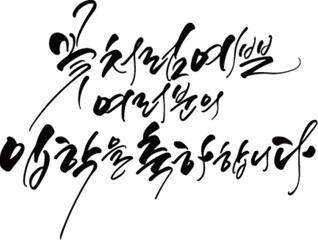 꽃처럼 예쁜
여러분의
입학을 축하합니다.